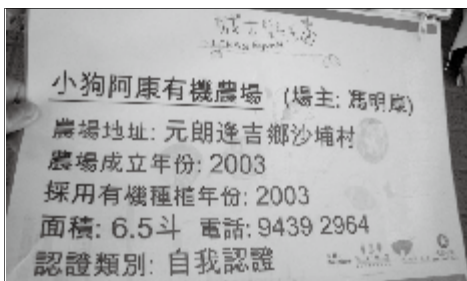 小狗阿康有機農場 (場主: 馮明康)
農場地址: 元朗逢吉鄉沙埔村
農場成立年份: 2003
採用有機種植年份: 2003
面積: 6.5斗 電話: 9439 2964
認證類別: 自我認證